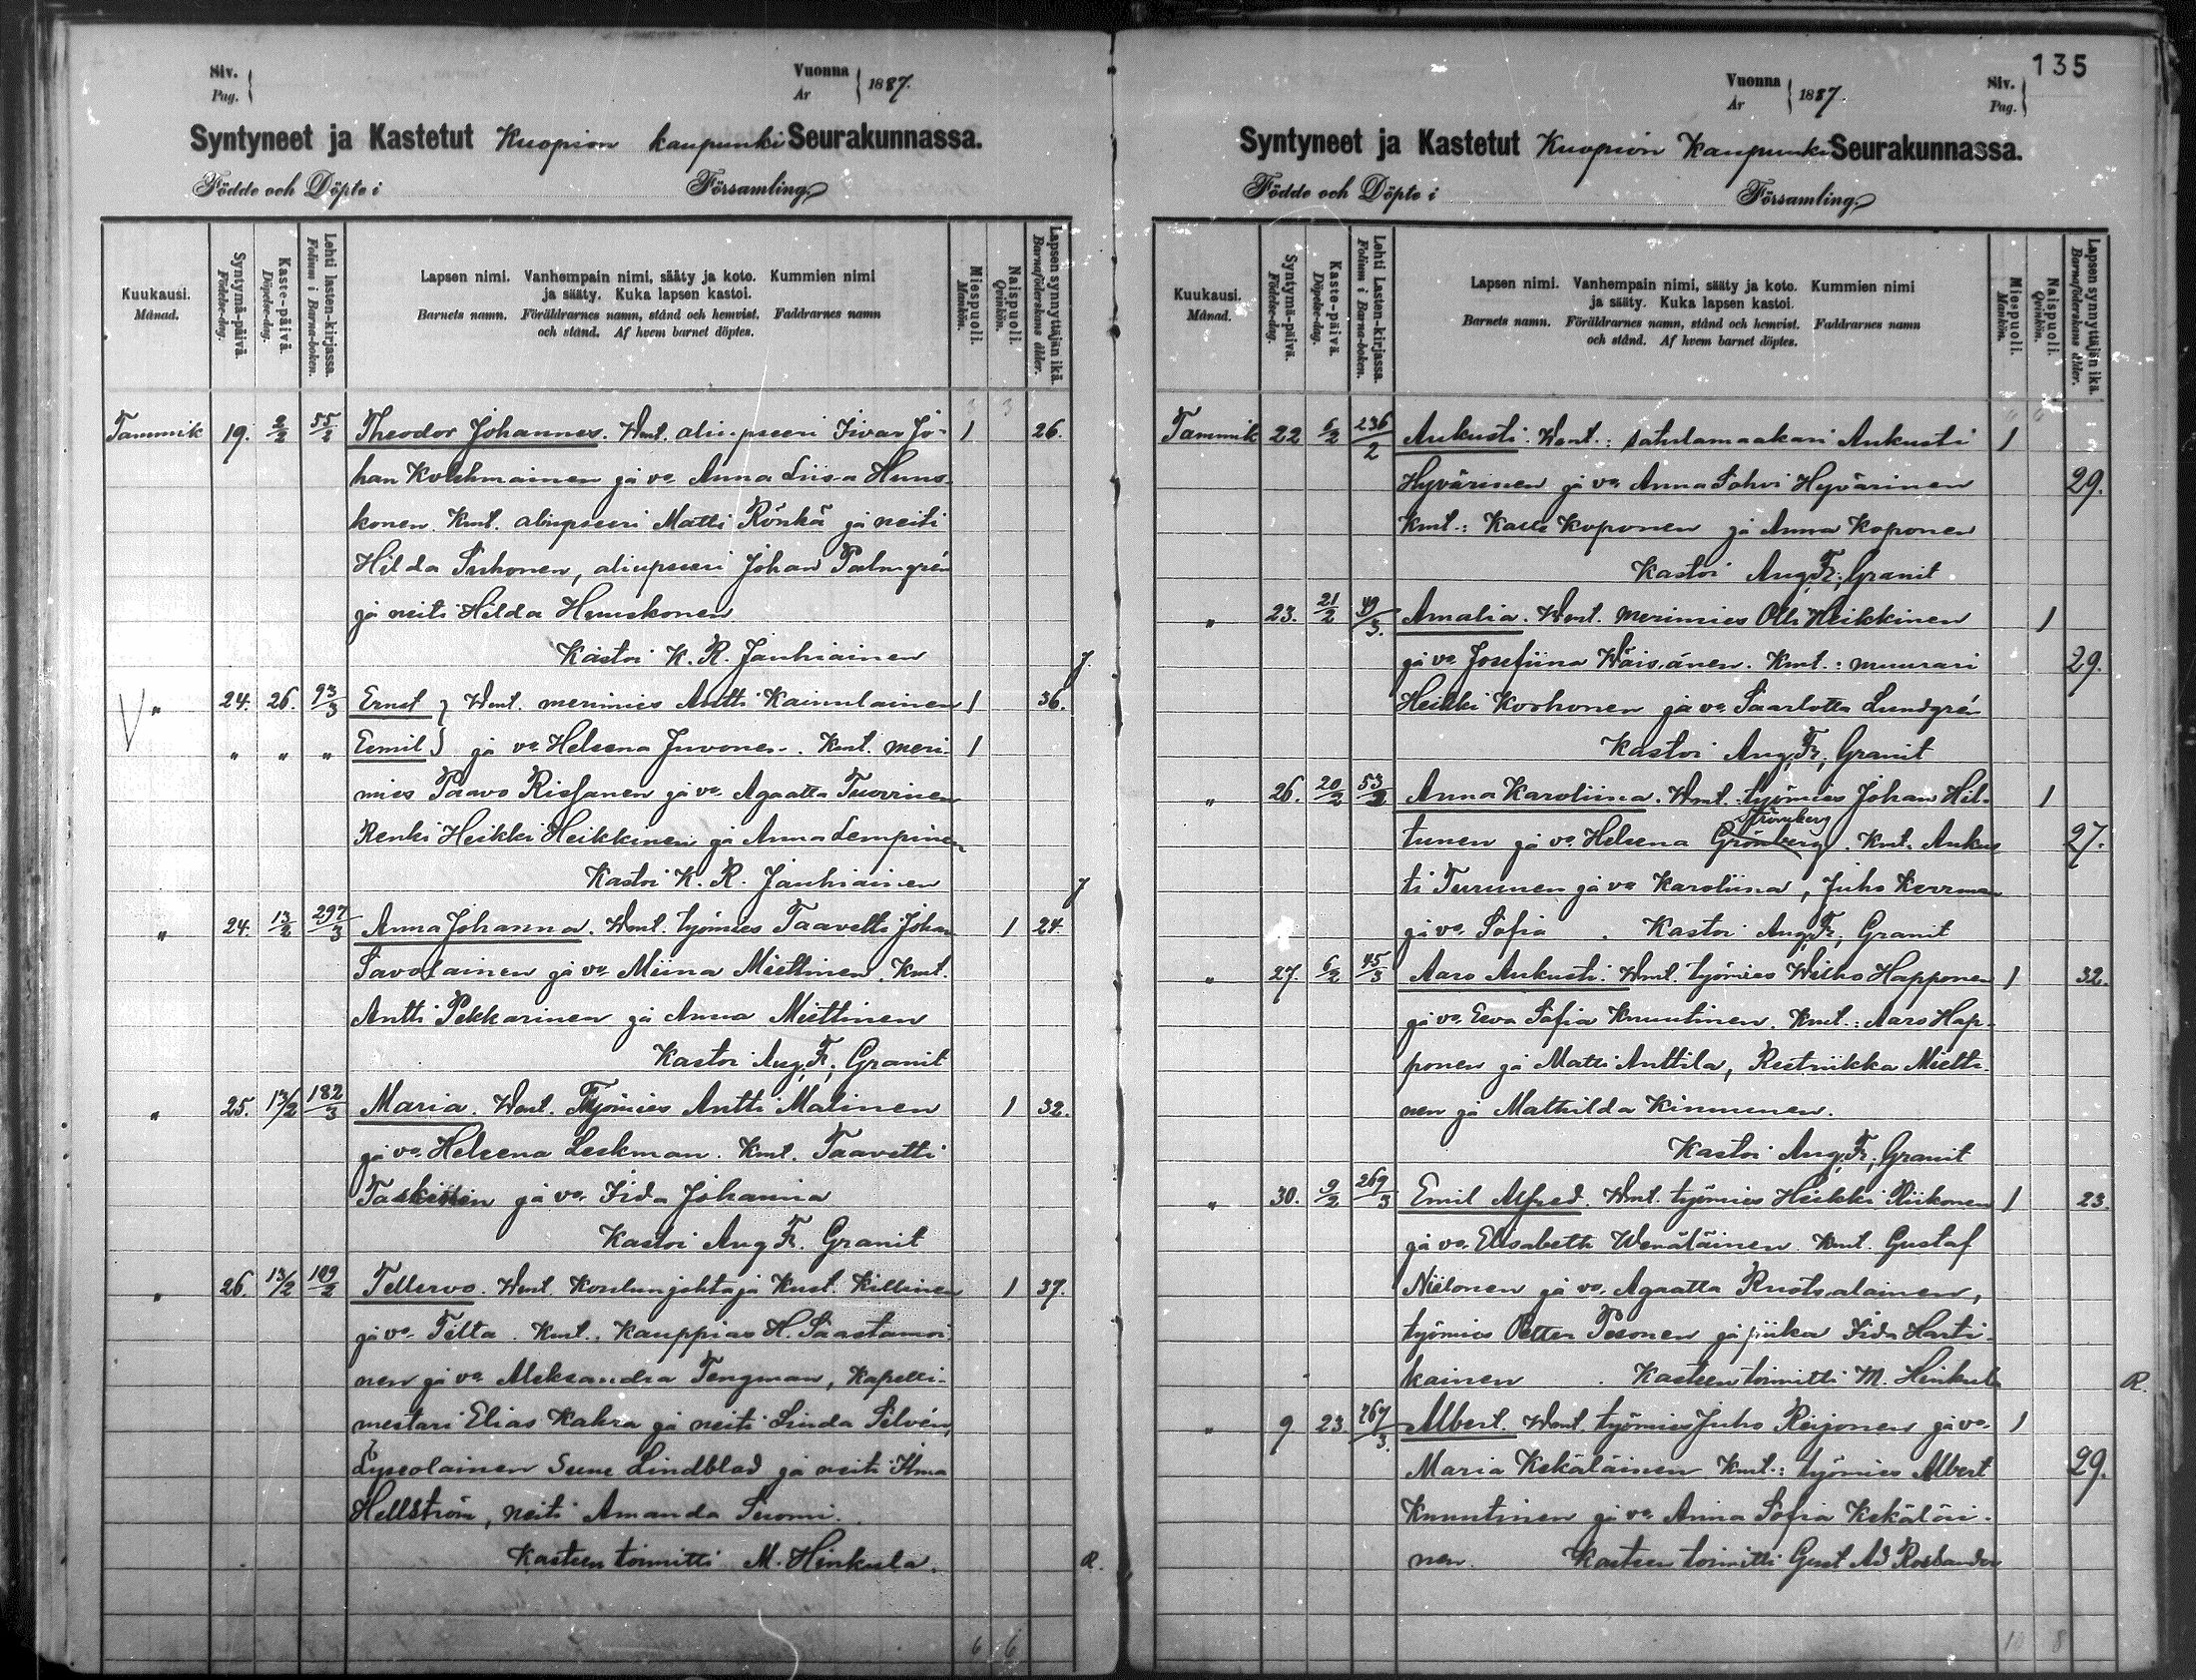 Siv.
Pag.
Vuonna
Ar
1887.
Syntyneet ja Kastetut Kuopion kaupunki Seurakunnassa.
Födde och Döpte i Församling.
Kuukausi.
Månad.
Syntymä-päivä.
Födelse-dag.
Kaste-päivä.
Döpelse-dag.
Lehti lasten-kirjassa.
Folium i Barna-boken.
Lapsen nimi. Vanhempain nimi, sääty ja koto. Kummien nimi
ja sääty. Kuka lapsen kastoi.
Barnets namn. Föräldrarnes namn, stånd och hemvist. Faddrarnes namn
och stånd. Af hvem barnet döptes.
Miespuoli.
Mankön.
Naispuoli.
Qvinkön.
Lapsen synnyttäjän ikä.
Barnaföderskans ålder.
3 3
Tammik 19. 2/2 55/2 Theodor Johannes. Wmt. aliupseeri Iivar Jo- 1 26.
han Kolehmainen ja vo. Anna Liisa Hunos-
konen. Kmt. aliupseeri Matti Rönkä ja neiti
Hilda Suhonen, aliupseeri Johan Palmgrén
ja neiti Hilda Hunoskonen
Kastoi K. R. Jauhiainen J.
" 24. 26. 93/3 Ernst } Wmt. merimies Antti Kainulainen 1 36.
" " " Eemil } ja vo. Helena Juvonen. Kmt. meri- 1
mies Paavo Rissanen ja vo. Agaatta Tuovinen
Renki Heikki Heikkinen ja Anna Lempinen
Kastoi K. R. Jauhiainen J
" 24. 13/2 297/3 Anna Johanna. Wmt. työmies Taavetti Johan 1 24.
Savolainen ja vo. Miina Miettinen. Kmt.
Antti Pekkarinen ja Anna Miettinen
Kastoi Aug. Fr. Granit
" 25. 13/2 182/3 Maria. Wmt. Työmies Antti Malinen 1 32.
ja vo. Heleena Leskman. Kmt. Taavetti
Taskinen ja vo. Iida Johanna
Kastoi Aug Fr. Granit
" 26. 13/2 109/2 Tellervo. Wmt. Koulunjohtaja Kust. Killinen 1 37.
ja vo. Tilta. Kmt. Kauppias H. Saastamoi
nen ja vo. Aleksandra Tengman, Kapelli-
mestari Elias Kahra ja neiti Linda Selvén,
Lyseolainen Sune Lindblad ja neiti Ilma
Hellström, neiti Amanda Suomi.
Kasteen toimitti M. Hinkula. R.
6 6
135
Vuonna
Ar
1887.
Siv.
Pag.
Syntyneet ja Kastetut Kuopion Kaupunki Seurakunnassa.
Födde och Döpte i Församling.
Kuukausi.
Månad.
Syntymä-päivä.
Födelse-dag.
Kaste-päivä.
Döpelse-dag.
Lehti Lasten-kirjassa.
Folium i Barna-boken.
Lapsen nimi. Vanhempain nimi, sääty ja koto. Kummien nimi
ja sääty. Kuka lapsen kastoi.
Barnets namn. Föräldrarnes namn, stånd och hemvist. Faddrarnes namn
och stånd. Af hvem barnet döptes.
Miespuoli.
Mankön.
Naispuoli.
Qvinkön.
Lapsen synnyttäjän ikä.
Barnaföderskans ålder.
6 6
Tammik 22 6/2 236/2 Aukusti. Wmt.: satulamaakari Aukusti 1
Hyvärinen ja vo. Anna Sohvi Hyvärinen 29.
Kmt.: Kalle Koponen ja Anna Koponen
Kastoi Aug. Fr. Granit
" 23. 21/2 49/3. Amalia. Wmt. merimies Olli Heikkinen 1
ja vo. Josefiina Wäisänen. Kmt.: muurari 29.
Heikki Korhonen ja vo. Saarlotta Lundgrén
Kastoi Aug. Fr. Granit
" 26. 20/2 53/2 Anna Karoliina. Wmt.: työmies Johan Hil- 1
Strömberg
tunen ja vo. Heleena Grönberg. Kmt. Aukus 27.
ti Turunen ja vo Karoliina, Juho Kerrman
ja vo. Sofia. Kastoi Aug. Fr. Granit
" 27. 6/2 45/3 Aaro Aukusti. Wmt. työmies Wilho Happonen 1 32.
ja vo. Eeva Sofia Knuutinen. Kmt.: Aaro Hap-
ponen ja Matti Anttila, Reetriikka Mietti-
nen ja Mathilda Kinnunen.
Kastoi Aug. Fr. Granit
" 30. 9/2 269/3 Emil Alfred. Wmt. työmies Heikki Niikonen 1 23.
ja vo. Elisabeth Wenäläinen. Kmt. Gustaf
Niilonen ja vo. Agaatta Ruotsalainen,
työmies Petter Pesonen ja piika Iida Harti-
kainen. Kasteen toimitti M. Hinkula R.
" 9. 23. 267/3. Albert. Wmt. työmies Juho Reijonen ja vo. 1
Maria Kekäläinen Kmt.: työmies Albert 29.
Knuutinen ja vo. Anna Sofia Kekäläi-
nen. Kasteen toimitti Gust Ad Rosbander
10 8